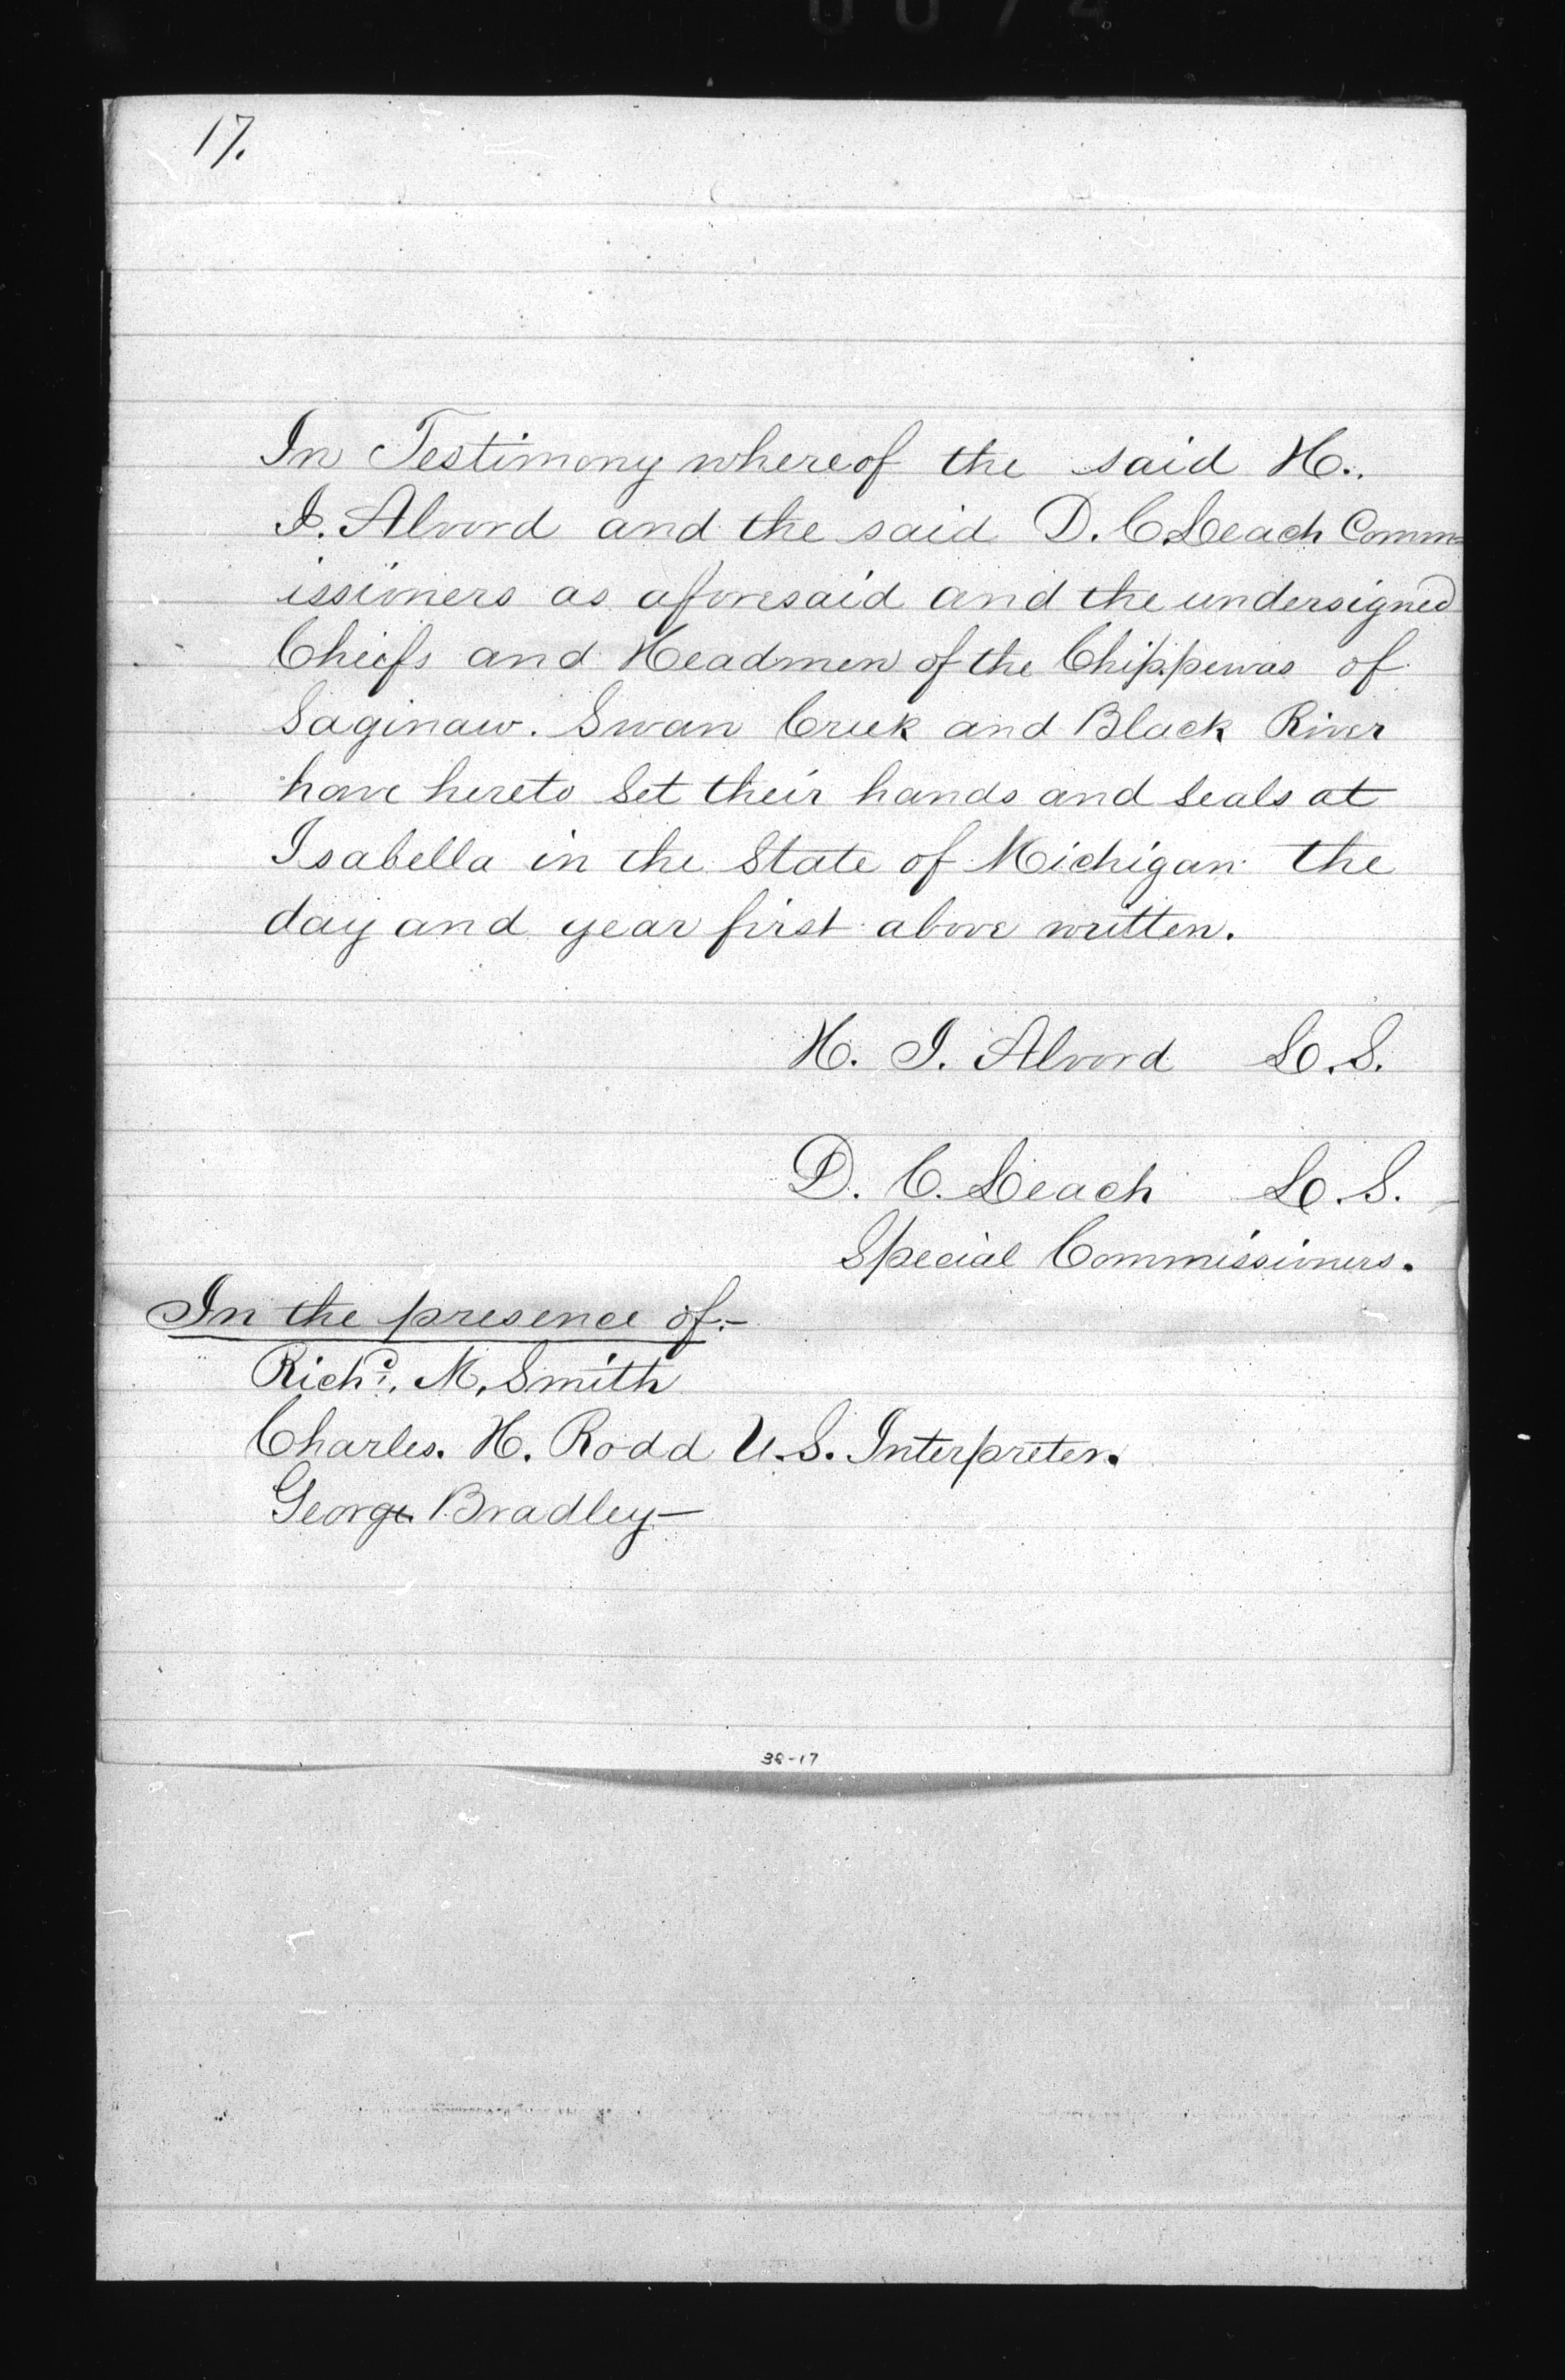 17.
In Testimony whereof the said H.
I. Alvord and the said D. C. Leach Comm=
issioners as aforesaid and the undersigned
Chiefs and Headmen of the Chippewas of
Saginaw. Swan Creek and Black River
have hereto Set their hands and Seals at
Isabella in the State of Michigan the
day and year first above written.
H. I. Alvord L.S.
D. C. Leach L.S.
Special Commissioners.
In the presence of:-
Richd. M. Smith
Charles. H. Rodd U.S. Interpreter.
George Bradley—
38-17